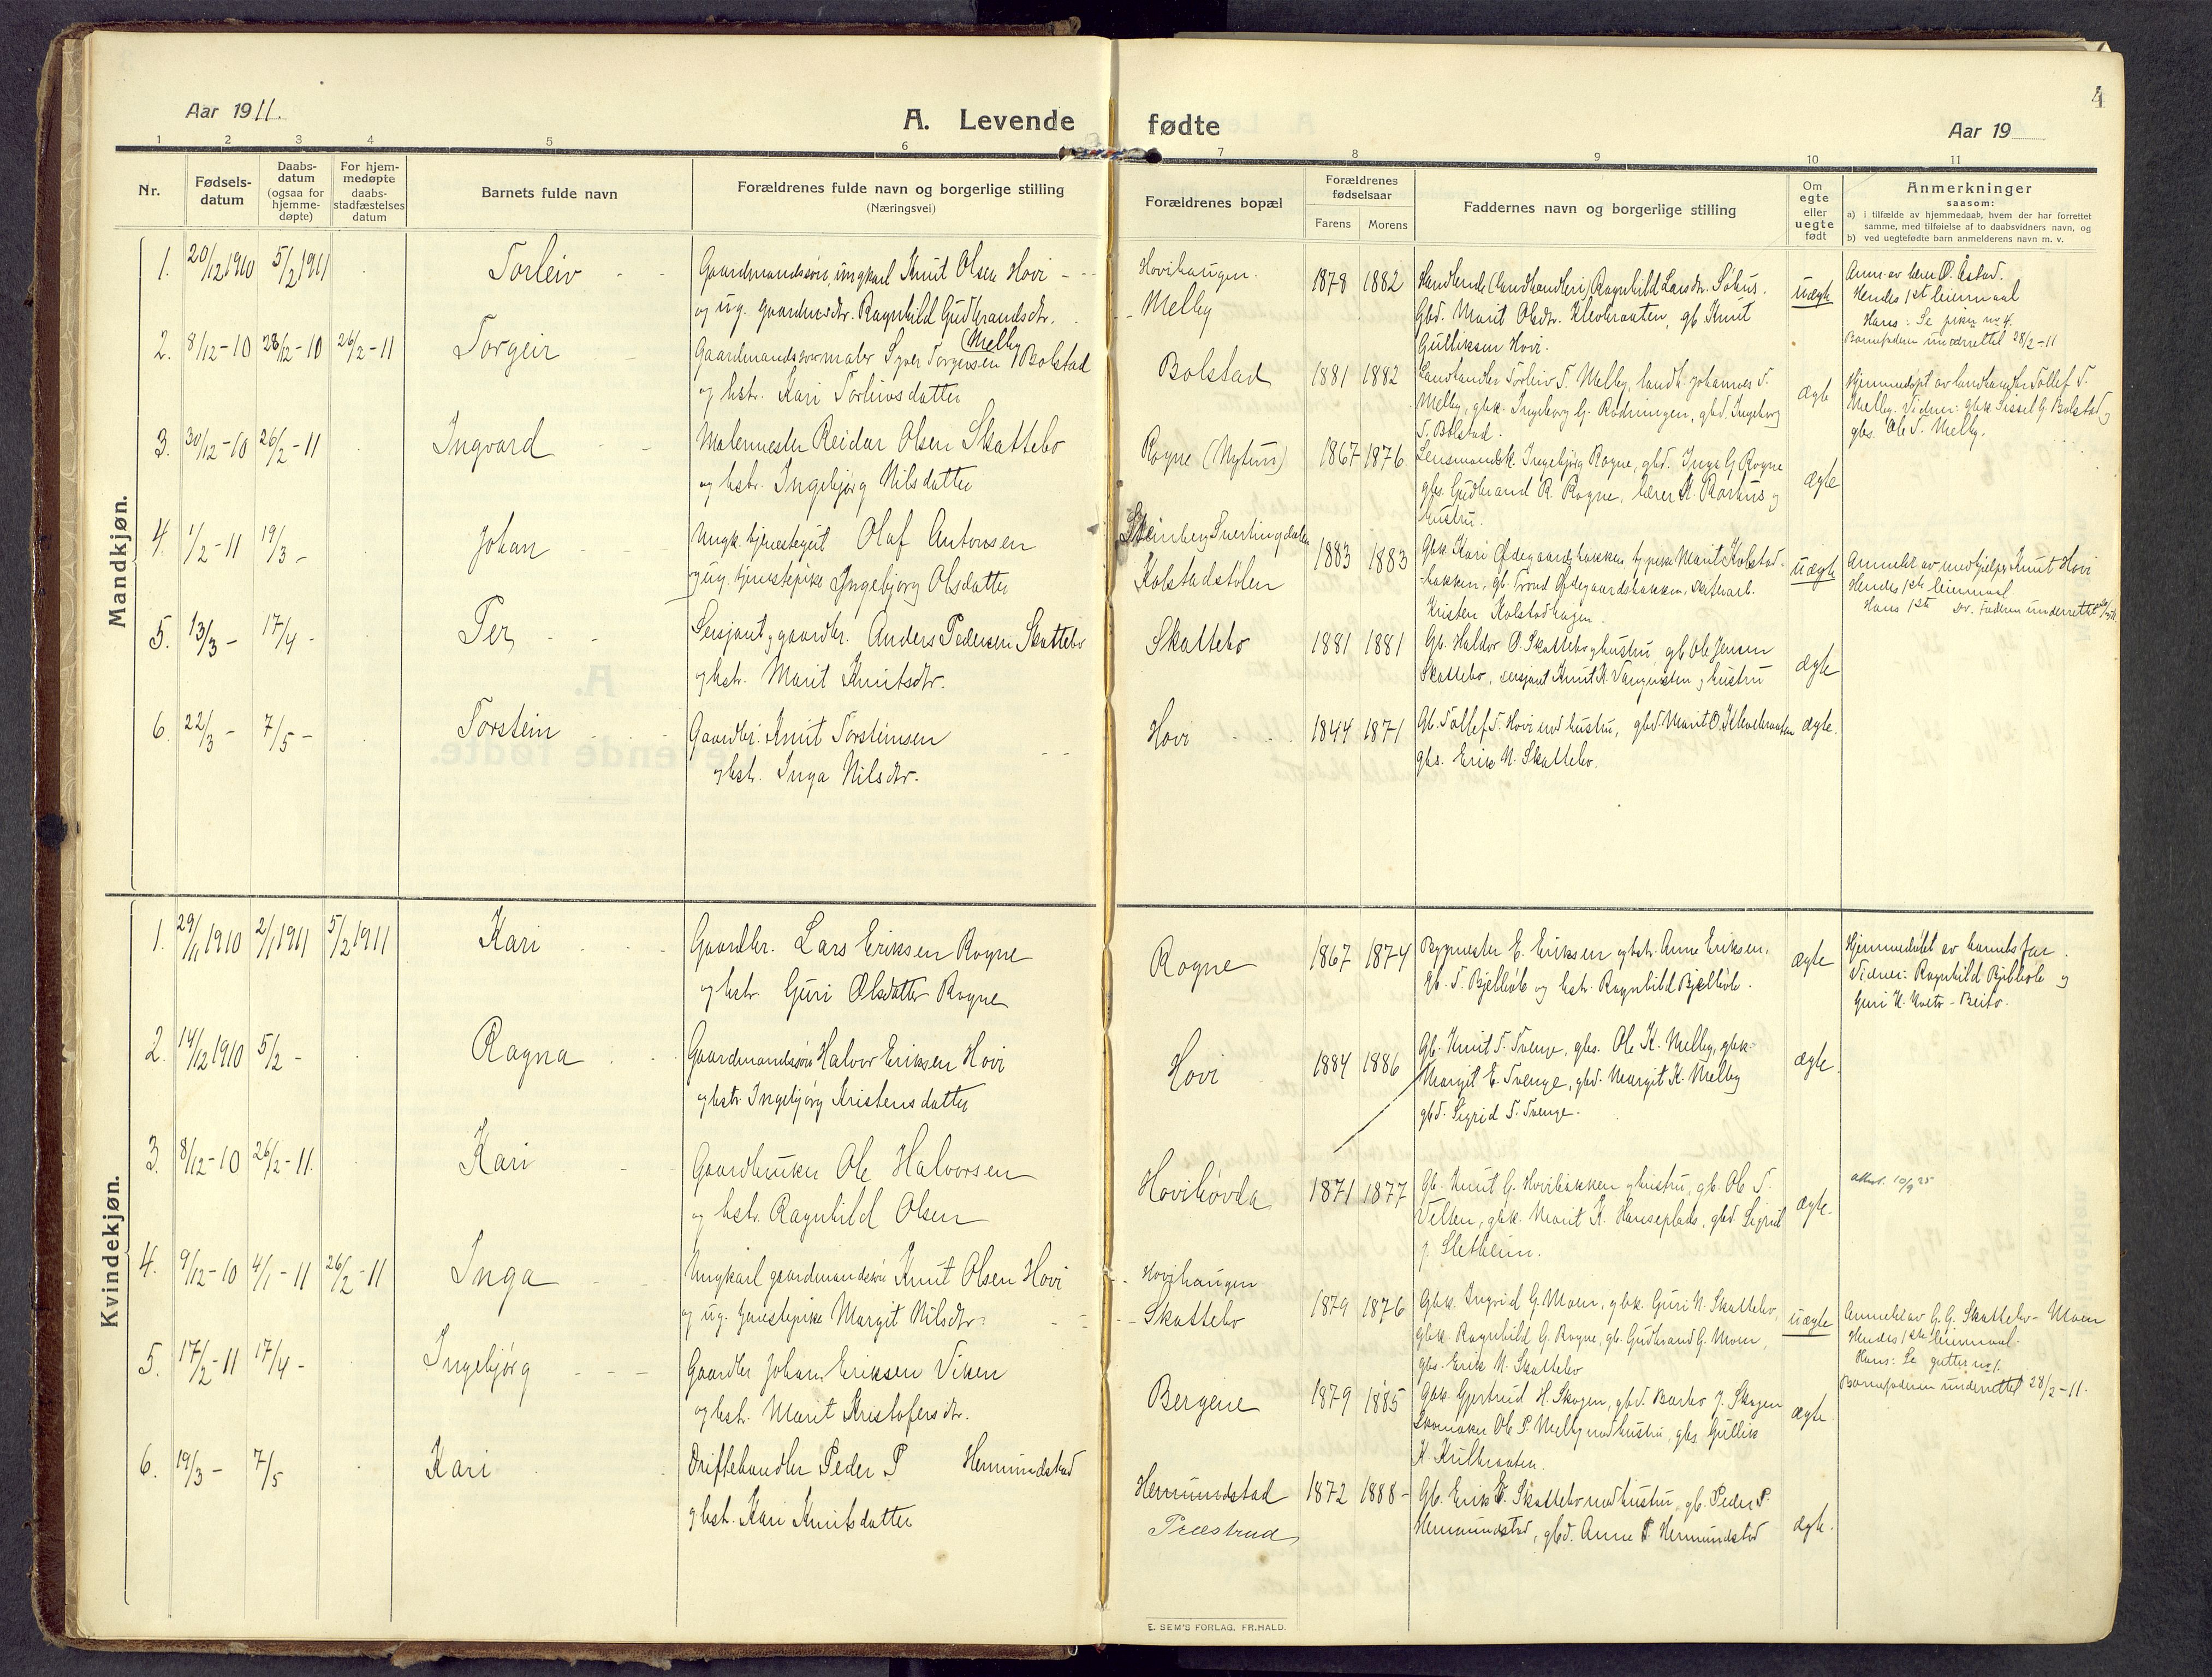 4
Aar 1911.
A. Levende fødte
Aar 19
1 2 3 4 5 6 7 8 9 10 11
Nr.
Fødsels-
datum
Daabs-
datum
(ogsaa for
hjemme-
døpte)
For hjem-
medøpte
daabs-
stadfæstelses
datum
Barnets fulde navn
Forældrenes fulde navn og borgerlige stilling
(Næringsvei)
Forældrenes bopæl
Forældrenes
fødselsaar
Farens Morens
Faddernes navn og borgerlige stilling
Om
egte
eller
uegte
født
Anmerkninger
saasom:
a) i tilfælde av hjemmedaab, hvem der har forrettet
samme, med tilføielse av to daabsvidners navn, og
b) ved uegtefødte barn anmelderens navn m. v.
Mandkjøn.
1. 20/12 1910 5/2 1911 Torleiv
Gaardmandssøn, ungkarl Knut Olsen Hovi
og ug. gaardmdtr. Ragnhild Gudbrandsdtr.
Melby
Hovihaugen.
Melby
1878 1882
Handlende (landhandleri) Ragnhild Larsdtr. Søhus.
Gbd. Marit Olsdtr. Kleveraaten, gb Knut
Gulliksen Hovi.
uægte
Anm. av lærer O. Østad.
Hendes 1st leiermaal
Hans: Se piker no 4.
Barnefaderen underrettet 28/2-11
2. 8/12-10 28/12-10 26/2-11 Torgeir
Gaardmandssøn maler Syver Torgersen Bolstad
og hstr. Kari Torleivsdatter
Bolstad
1881 1882
Landhandler Torleiv T. Melby, landh. Johannes T.
Melby, gbk. Ingeborg G. Rødningen, gbd. Ingeborg
T. Bolstad.
ægte
Hjemmedøpt av landhandler Tollef T.
Melby. Vidner: gbk Sissel G. Bolstad og
gbs. Ole T. Melby.
3. 30/12-10 26/2-11 Ingvard
Malermester Reidar Olsen Skattebo
og hstr. Ingebjørg Nilsdatter
Rogne (Nytun)
1867 1876
Lensmandsk. Ingebjørg Rogne, gbd. Inga G Rogne
gbs. Gudbrand R. Rogne, lærer K. Barhus og
hustru.
ægte
4. 1/2-11 19/3- Johan
Ungk. tjenestegut Olaf Antonsen
og ug. tjenestepike Ingebjørg Olsdatter
Steinberg Snertingdalen
Kolstadstølen
1883 1883
Gbk. Kari Ødegaardsbakken, tj.pike Marit Kolstad-
bakken, gb. Trond Ødegaardsbakken, skiferarb.
Kristen Kolstadhagen.
uægte
Anmeldt av medhjelper Knut Hovi
Hendes 1ste leiermaal
Hans 1ste Do. Faderen underrettet
5. 13/3- 17/4- Per
Sersjant, gaardbr. Anders Pedersen Skattebo
og hstr. Marit Knutsdtr.
Skattebo
1881 1881
Gb. Haldor O. Skattebo og hustru, gb Ole Jensen
Skattebo, sersjant Knut K. Vangensten og hustru
ægte
6. 22/3- 7/5- Torstein
Gaardbr. Knut Torsteinsen
og hstr. Inga Nilsdtr.
Hovi
1844 1871
Gb. Tollef T. Hovi med hustru, gbd. Marit O. Kleveraaten
gbs. Erik N. Skattebo.
ægte.
Kvindekjøn.
1. 29/11 1910 2/1 1911 5/2 1911 Kari
Gaardbr. Lars Eriksen Rogne
og hstr. Guri Olsdatter Rogne
Rogne
1867 1874
Bygmester E. Eriksen og hstr. Anne Eriksen.
Gb. T. Bjelbøle og hstr. Ragnhild Bjelbøle.
ægte
Hjemmedøbt av barnets far.
Vidner: Ragnhild Bjelbøle og
Guri K. Kveto - Beito.
2. 14/12 1910 5/2- Ragna
Gaardmandssøn Halvor Eriksen Hovi
og hstr. Ingebjørg Kristensdatter
Hovi
1884 1886
Gb. Knut T. Tvenge, gbs. Ole K. Melby, gbk.
Margit E. Tvenge, gbd. Margit K. Melby
gbd. Sigrid T. Tvenge.
ægte
3. 8/12-10 26/2-11. Kari
Gaardbruker Ole Halvorsen
og hstr. Ragnhild Olsen
Hovihøvda
1871 1877
Gb. Knut G. Hovibakken og hustru, gb. Ole T.
Vellen, gbk. Marit K. Hanseplads, gbd. Sigrid
J. Sletheim.
ægte.
attest. 10/9 25
4. 9/12-10 4/1-11 26/2-11 Inga
Ungkarl gaardmandssøn Knut Olsen Hovi
og ug. tjenestepike Margit Nilsdtr.
Hovihaugen
Skattebo
1879 1876
Gbk. Ingrid G. Moen, gbk. Guri N. Skattebo,
gbk Ragnhild G. Rogne, gb. Gudbrand G. Moen,
gbs. Erik N. Skattebo
uægte
Anmeldt av G. G. Skattebo - Moen
Hendes 1ste leiermaal.
Hans: Se gutter no 1.
Barnefaderen underrettet 28/2-11.
5. 17/2-11 17/4- Ingebjørg
Gaardbr Johan Eriksen Viken
og hst. Marit Kristofersdtr.
Bergene
1879 1885
Gbk. Gjertrud H. Skogen, gbd. Barbro J. Skogen
Skomaker Ole P. Melby med hustru, gbs. Gullik
K. Kulbraaten.
ægte
6. 19/3- 7/5 Kari
Driftehandler Peder P Hermundstad
og hst. Kari Knutsdatter
Hermundstad
Præstrud
1872 1888-
Gb. Erik E. Skattebo med hustru, gb. Peder P.
Hermundstad, gbd. Anne P. Hermundstad
ægte.
E. SEM'S FORLAG. FR.HALD.